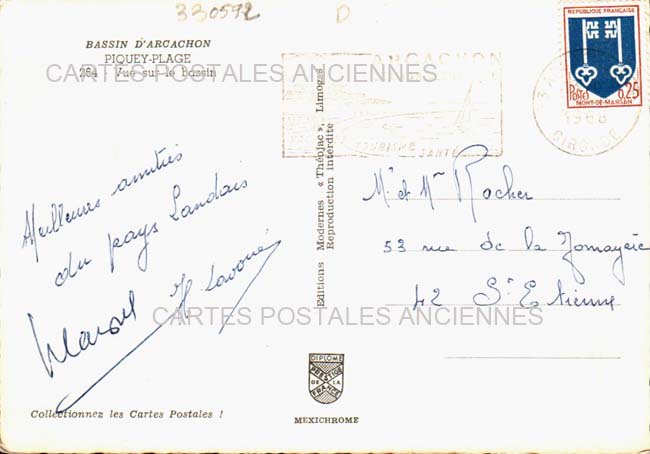 330592
D
BASSIN D'ARCACHON
PIQUEY-PLAGE
264 - Vue sur le bassin
CARTES POSTALES ANCIENNES
ARCACHON
TOURISME SANTÉ
REPUBLIQUE FRANÇAISE
Postes 0,25
MONT-DE-MARSAN
1968
GIRONDE
Meilleures amitiés
du pays Landais
Marcel H Savoué
Editions Modernes « Théojac », Limoges
Reproduction interdite
Mr et Mme Rocher
53 rue de la
42 St Etienne
CARTES POSTALES ANCIENNES
DIPLOME
PRESTIGE
DE LA
FRANCE
Collectionnez les Cartes Postales !
MEXICHROME